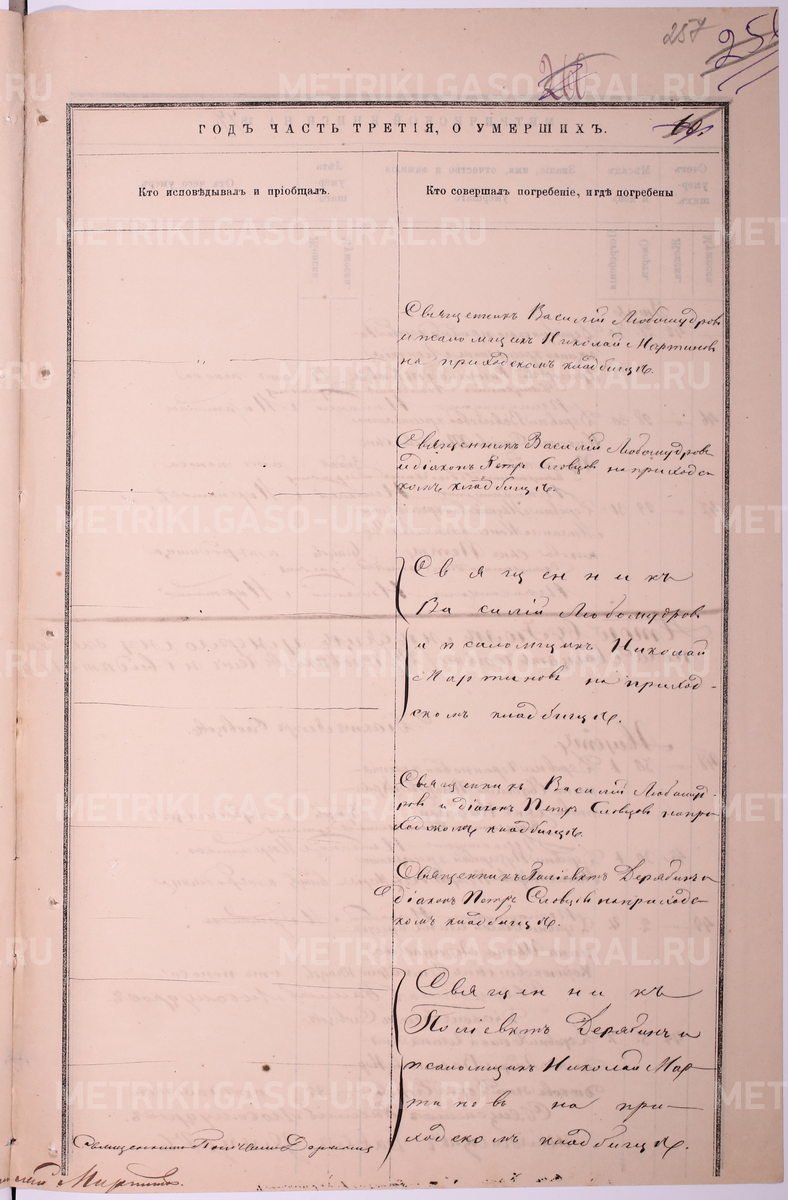 257
ГОДЪ ЧАСТЬ ТРЕТІЯ, О УМЕРШИХЪ.
Кто исповѣдывалъ и пріобщалъ.
Кто совершалъ погребеніе, и гдѣ погребены
Священникъ Василій Любомудровъ
и псаломщикъ Николай Мартиновъ
на приходскомъ кладбищѣ.
Священникъ Василій Любомудровъ
и діаконъ Петръ Словцовъ на приходс-
комъ кладбищѣ.
Священникъ
Василій Любомудровъ
и псаломщикъ Николай
Мартиновъ на приход-
скомъ кладбищѣ.
Священникъ Василій Любомуд-
ровъ и діаконъ Петръ Словцовъ на при
ходском кладбищѣ.
Священникъ Поліевктъ Дерябинъ и
діаконъ Петръ Словцовъ на приходс-
комъ кладбищѣ.
Священникъ
Поліевктъ Дерябинъ и
псаломщикъ Николай Мар-
тиновъ на при-
ходскомъ кладбищѣ.
Священникъ
METRIKI.GASO-URAL.RU